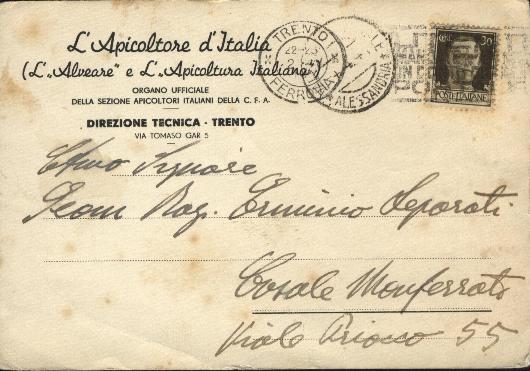 L'Apicoltore d'Italia
(L'„Alveare" e L'„Apicoltura Italiana„)
ORGANO UFFICIALE
DELLA SEZIONE APICOLTORI ITALIANI DELLA C. F. A.
DIREZIONE TECNICA - TRENTO
VIA TOMASO GAR 5
TRENTO
22-23
FERROVIA
ALESSANDRIA
30
POSTE ITALIANE
Signore
Rag. Erminio Deporati
Casale Monferrato
Viale 55